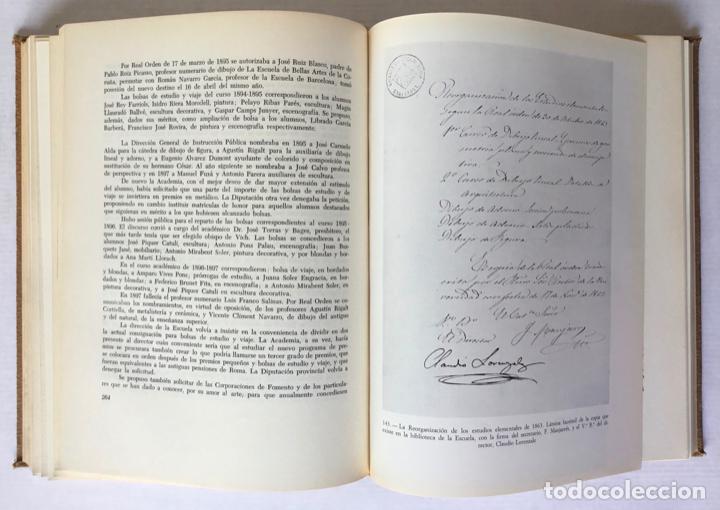 Por Real Orden de 17 de marzo de 1895 se autorizaba a José Ruiz Blasco, padre de
Pablo Ruiz Picasso, profesor numerario de dibujo de La Escuela de Bellas Artes de la Co-
ruña, permutar con Román Navarro García, profesor de la Escuela de Barcelona; tomó
posesión del nuevo destino el 16 de abril del mismo año.
Las bolsas de estudio y viaje del curso 1894-1895 correspondieron a los alumnos
José Rey Farriols, Isidro Riera Moredell, pintura; Pelayo Ribas Parés, escultura; Magín
Llauradó Ballvé, escultura decorativa, y Gaspar Camps Junyer, escenografía. Se propusie-
ron, además, dados sus méritos, como ampliación de bolsa a los alumnos, Librado García
Barberá, Francisco José Rovira, de pintura y escenografía respectivamente.
La Dirección General de Instrucción Pública nombraba en 1895 a José Carmelo
Alda para la cátedra de dibujo de figura, a Agustín Rigalt para la auxiliaría de dibujo
lineal y adorno, y a Eugenio Alvarez Dumont ayudante de colorido y composición en
substitución de su hermano César. Al año siguiente se nombraba a José Calvo profesor
de perspectiva y en 1897 a Manuel Fuxá y Antonio Parera auxiliares de escultura.
De nuevo la Academia, con el mejor deseo de dar mayor extensión al estímulo
del alumno, había solicitado que una parte del importe de las bolsas de estudio y de viaje
se invirtiera en premios en metálico. La Diputación otra vez denegaba la petición,
proponiendo en cambio instituir matrículas de honor para aquellos alumnos destacados
que siguieran en mérito a los que hubiesen alcanzado bolsas.
Hubo unión pública para el reparto de las bolsas correspondientes al curso 1895-
1896. El discurso corrió a cargo del académico Dr. José Torras y Bages, presbítero, el
que más tarde tenía que ser elegido obispo de Vich. Las bolsas se concedieron a los
alumnos, José Piquer Catuli, escultura; Antonio Pons Palau, escenografía; Juan Bus-
quets Jané, mobiliario; Antonio Mirabent Soler, pintura decorativa, y por blondas y bor-
dados a Ana Martí Llorach.
En el curso académico de 1896-1897 correspondieron: bolsa de viaje, en bordados
y blondas, a Amparo Vives Pons; prórrogas de estudio, a Juana Soler Engracia, en borda-
dos, a Federico Brunet Fita, en escenografía, a Antonio Mirabent Soler, en
pintura decorativa, y a José Piquer Catuli en escultura decorativa.
En 1897 fallecía el profesor numerario Luis Franco Salinas. Por Real Orden se co-
municaban los nombramientos, en virtud de oposición, de los profesores Agustín Rigalt
y Cortiella, de metalistería y cerámica, y Vicente Climent Navarro, de dibujo del antiguo
y del natural, de la enseñanza superior.
La dirección de la Escuela volvía a insistir en la conveniencia de dividir en dos
la actual consignación para bolsas de estudio y viaje. La Academia, a su vez, hacía
presente al director cuán conveniente sería que al estudiar el nuevo programa de pre-
mios se procurara también crear lo que podría llamarse un tercer grado de premios, que
se colocara en orden después de los premios pequeños y bolsas de estudio y viaje, y que
fueran equivalentes a las antiguas pensiones de Roma. La Diputación provincial volvía a
denegar la solicitud.
Se propuso también solicitar de las Corporaciones de Fomento y de los particula-
res que se dan a conocer, por su amor al arte, para que anualmente concediesen
264
Reorganización de los Estudios elementales
segun la Real orden de 30 de Octubre de 1863
1er Curso de Dibujo lineal
2º Curso de Dibujo lineal
Dibujo de Adorno
Dibujo de Adorno
Dibujo de Figura
El Director
Claudio Lorenzale
143. — La Reorganización de los estudios elementales de 1863. Lámina facsímil de la copia que
existe en la biblioteca de la Escuela, con la firma del secretario, F. Manjarrés, y el V.º B.º del di-
rector, Claudio Lorenzale
todocoleccion.net